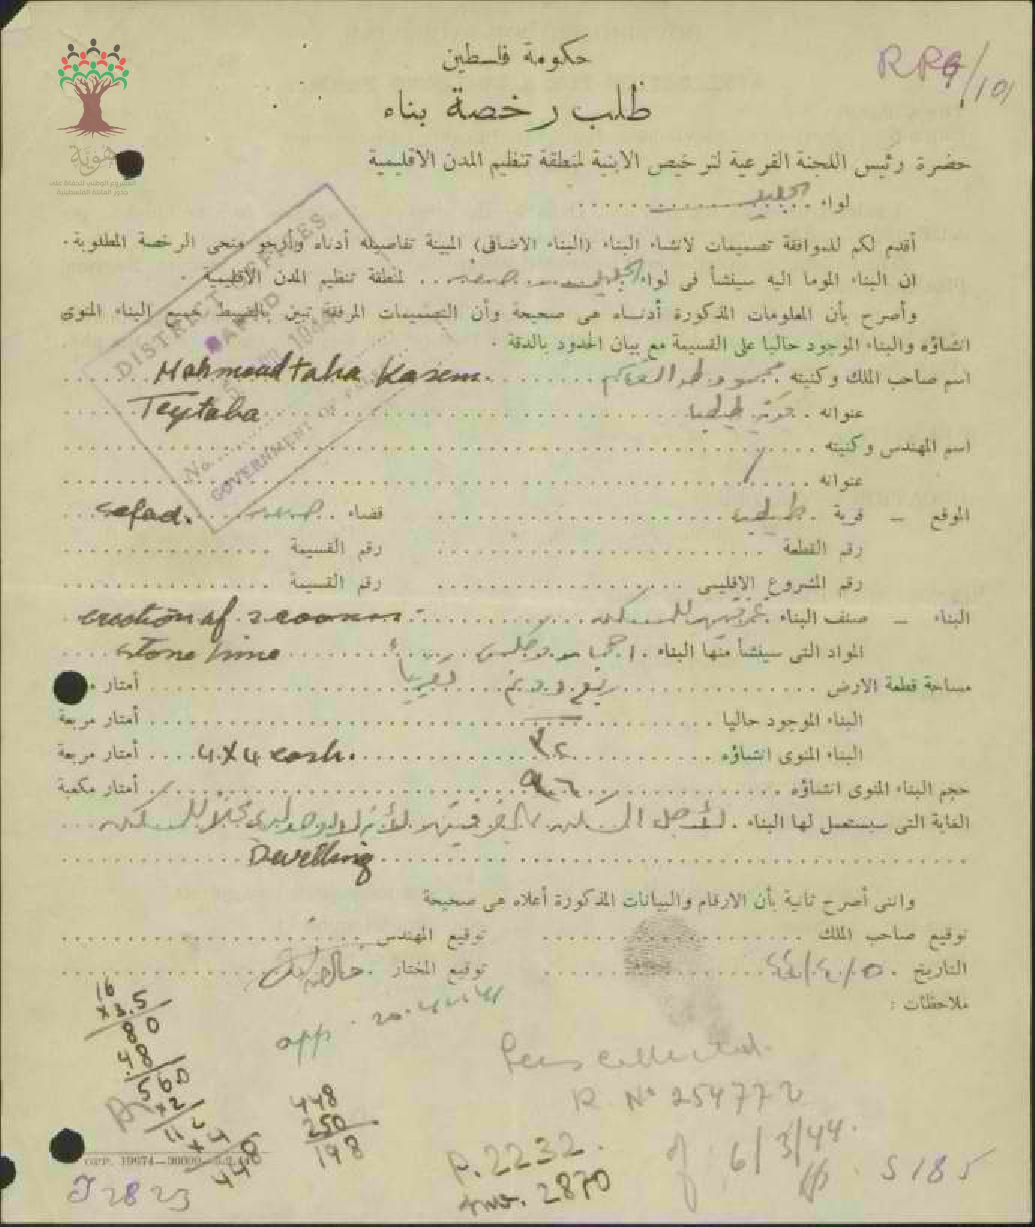 هوية
المشروع الوطني للحفاظ على
جذور العائلة الفلسطينية
حكومة فلسطين
RP9/101
طلب رخصة بناء
حضرة رئيس اللجنة الفرعية لترخيص الابنية لمنطقة تنظيم المدن الاقليمية
لواء الجليل
أقدم لكم للموافقة تصميمات لانشاء البناء (البناء الاضافى) المبينة تفاصيله أدناه وأرجو منحى الرخصة المطلوبة.
ان البناء الموما اليه سينشأ فى لواء الجليل صفد لمنطقة تنظيم المدن الاقليمية .
وأصرح بأن المعلومات المذكورة أدناه هى صحيحة وأن التصميمات المرفقة تبين بالضبط جميع البناء المنوى
انشاؤه والبناء الموجود حاليا على القسيمة مع بيان الحدود بالدقة .
DISTRICT OFFICES
SAFAD
No.
GOVERNMENT OF
اسم صاحب الملك وكنيته محمود طه القاسم Mahmoud taha Kasem.
عنوانه قرية طيطبا Teytaba
اسم المهندس وكنيته
عنوانه
الموقع – قرية طيطبا قضاء صفد Safad.
رقم القطعة رقم القسيمة
رقم المشروع الاقليمى رقم القسيمة
البناء – صنف البناء غرفتين للسكن erection of 2 rooms
المواد التى سينشأ منها البناء احجار وكلس stone lime
مساحة قطعة الارض ربع دونم تقريبا أمتار
البناء الموجود حاليا أمتار مربعة
البناء المنوى انشاؤه ٣٢ 4 x 4 each. أمتار مربعة
حجم البناء المنوى انشاؤه ٩٦ أمتار مكعبة
الغاية التى سيستعمل لها البناء . لأجل السكن للسكن
Dwelling
وانى أصرح ثانية بأن الارقام والبيانات المذكورة أعلاه هى صحيحة
توقيع صاحب الملك توقيع المهندس
التاريخ ٥/٢/٤٤ توقيع المختار
ملاحظات :
16
x 3.5
80
560
x 2
448
app.
448
250
198
Fees collected.
R No 254772
of 6/3/44.
P. 2232.
2870
S 185
GPP. 19674—30000—5.2.4
J 2823